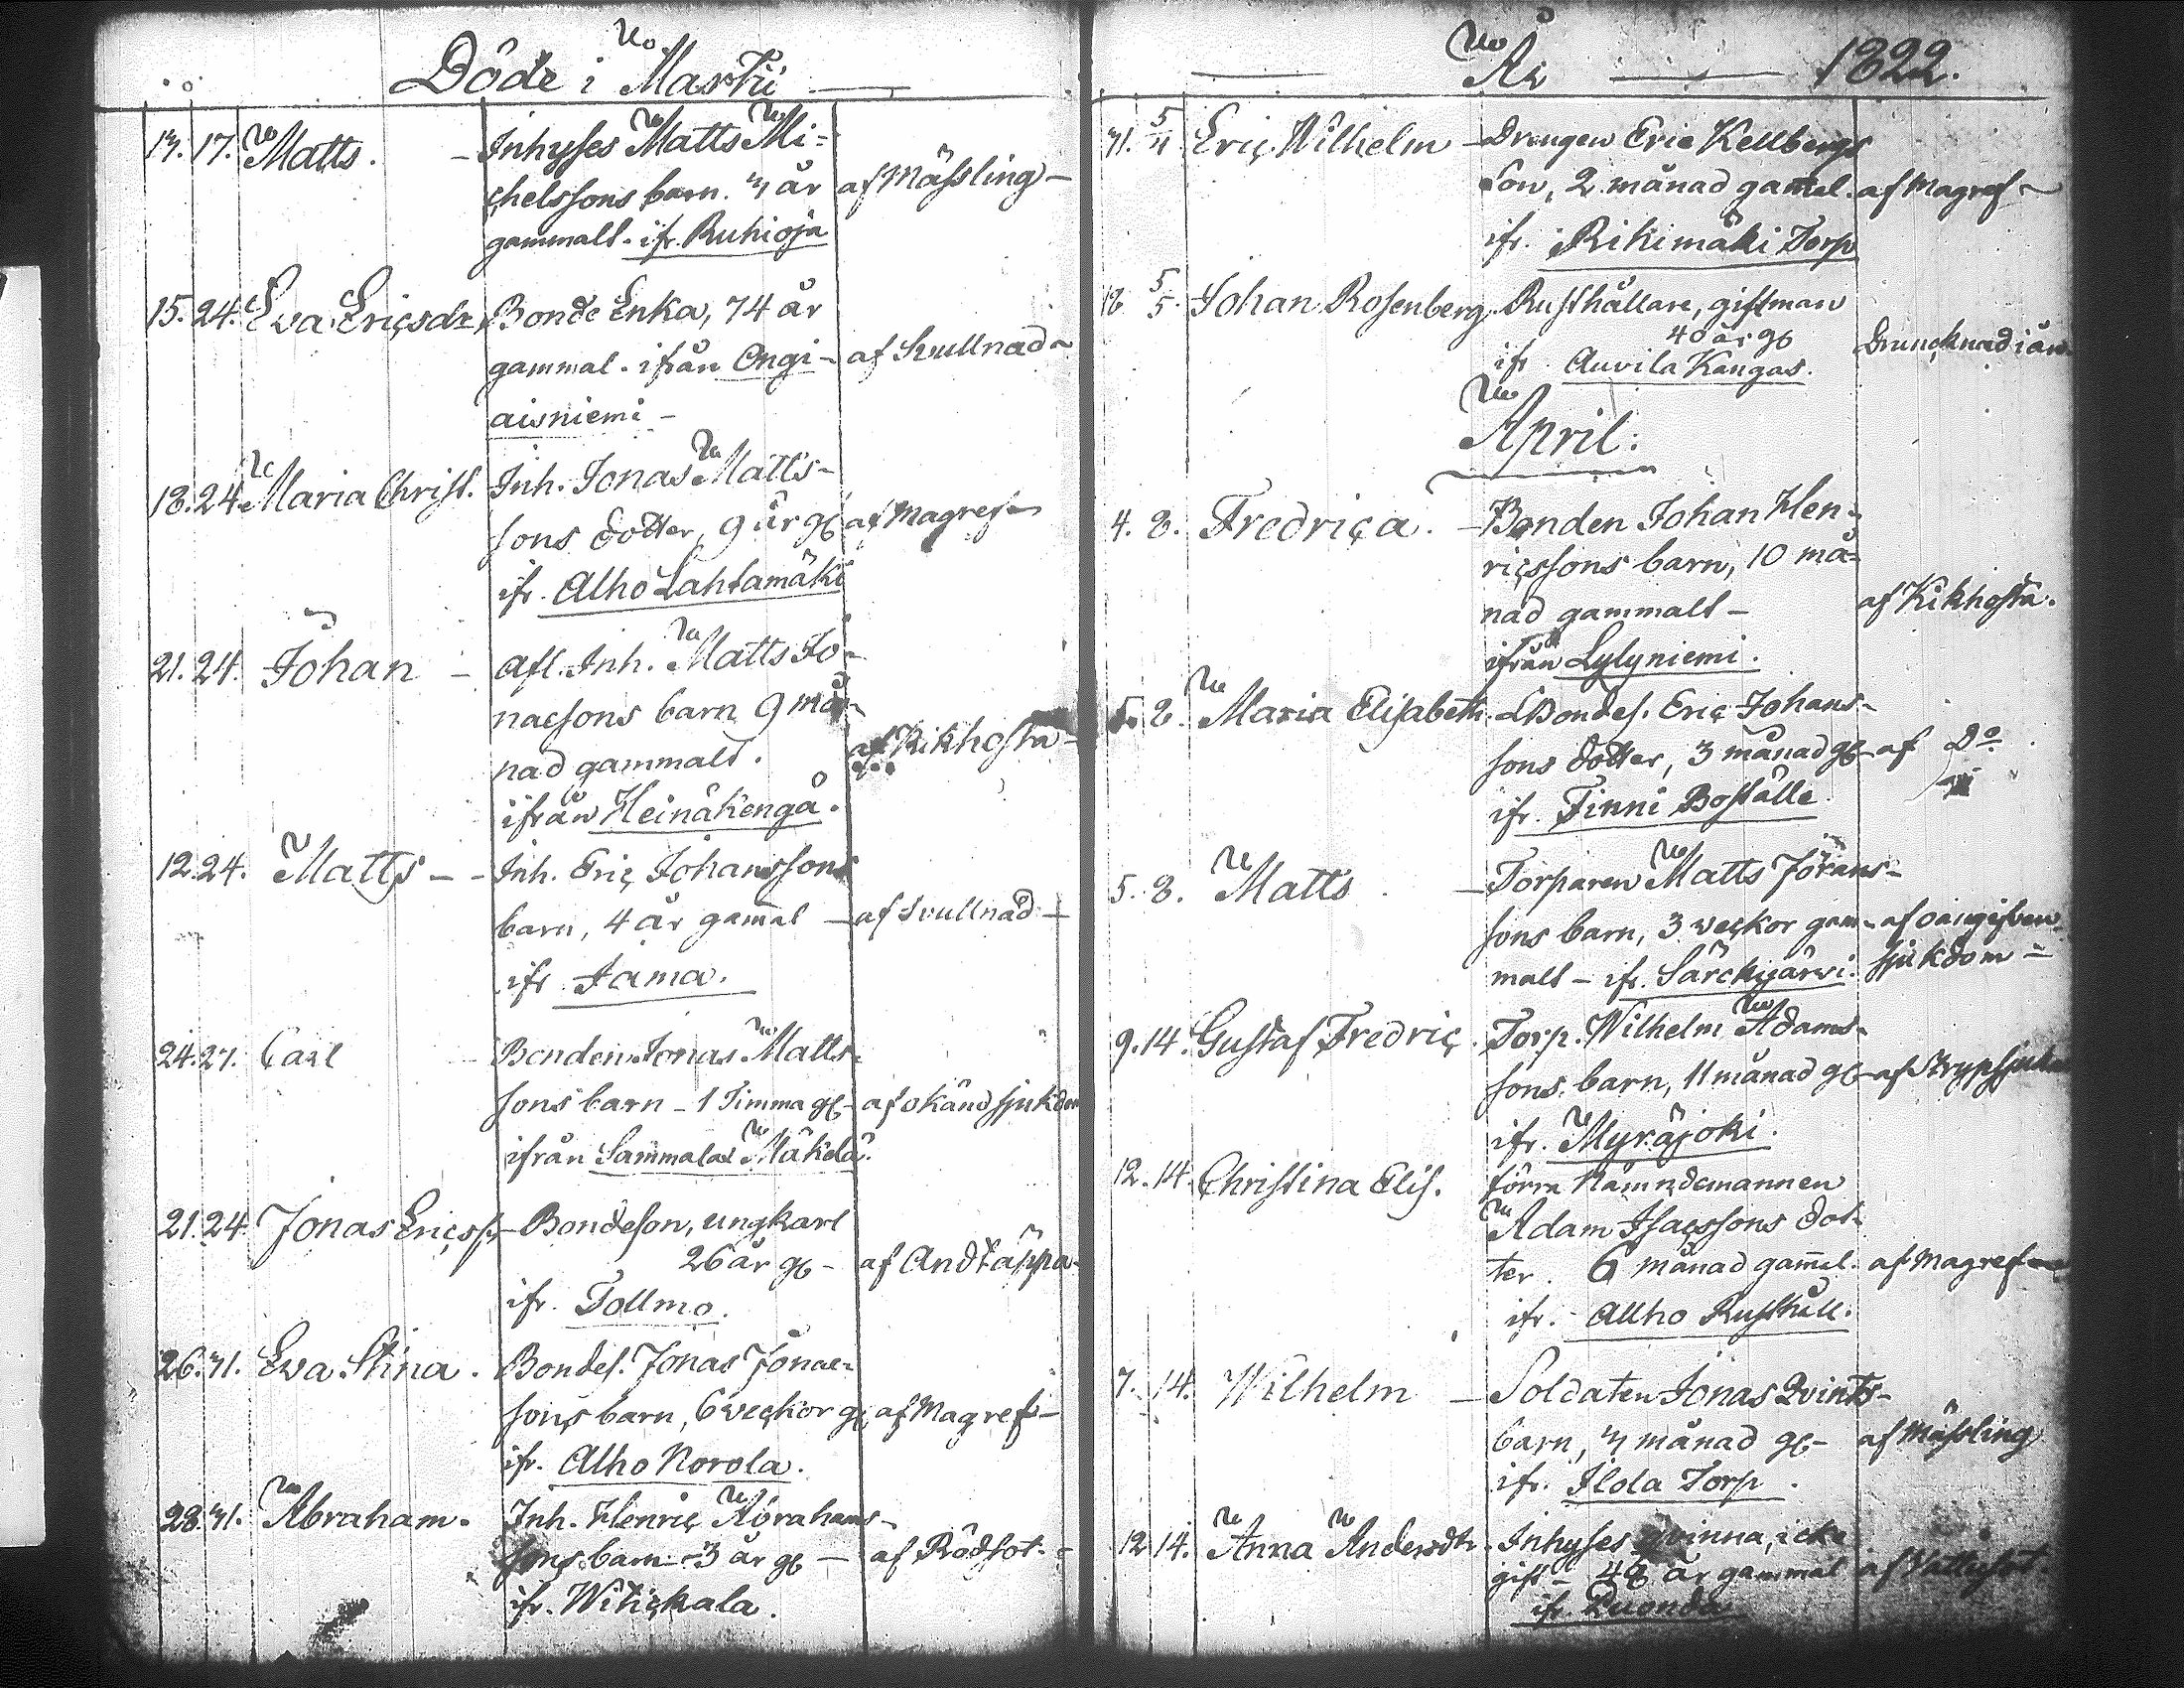 Döde i Martii
13. 17. Matts. - Inhyses Matts Mi=
chelssons barn. 3 år af Mässling -
gammalt. ifr. Ruhioja
15. 24. Eva Ericsdr, Bonde Enka, 74 år
gammal. ifrån Ongi- af Svullnad
aisniemi -
18. 24. Maria Christ. Inh. Jonas Matts-
sons dotter, 9 år gl af Magref
ifr. Alho Lahtamäki
21. 24. Johan - Afl. Inh. Matts Jo-
naesons barn 9 må-
nad gammalt. af Kikhosta -
ifrån Heinäkengä.
12. 24. Matts - - Inh. Eric Johanssons
barn, 4 år gamal - af Svullnad -
ifr Jama.
24. 27. Carl Bonden Jonas Matts-
sons barn - 1 Timma gl- af okänd sjukdom
ifrån Sammalas Mäkelä.
21. 24 Jonas Ericss. - Bondeson, ungkarl
26 år gl - af Andtäppa.
ifr. Tollmo.
26. 31. Eva Stina. Bondes. Jonas Jonae-
sons barn, 6 veckor gl, af Magref -
ifr. Alho Norola.
28. 31. Abraham. Inh. Henric Abrahams-
sons barn - 3 år gl - af Rödsot.
ifr. Witickala.
År 1822.
31. 5/4 Eric Wilhelm - Drengen Eric Kellbergs
Son, 2 månad gamal. af Magref
ifr. Rikimäki Torp
18 5/5. Johan Rosenberg. Rusthållare, giftman
40 år gl
ifr Auvila Kangas. Druncknad i ån
April.
4. 8. Fredrica. - Bonden Johan Hen-
ricssons barn, 10 må-
nad gammalt - af Kikhosta.
ifrån Lylyniemi.
5. 8. Maria Elisabeth. Bondes. Eric Johans-
sons dotter, 3 månad gl- af Do
ifr. Finni Boställe
5. 8. Matts - Torparen Matts Jörans-
sons barn, 3 veckor gam- af oangifven
malt - ifr. Särckijärvi. sjukdom -
9. 14. Gustaf Fredric. Torp. Wilhelm Adams-
sons barn, 11 månad gl- af Strypsjuka
ifr. Myräjoki.
12. 14. Christina Elis. förra Nämndemannen
Adam Isacssons dot-
ter. 6 månad gamal. af Magref
ifr. Allho Rusthåll.
7. 14. Wilhelm - Soldaten Jonas Qvints-
barn, 3 månad gl- af Mässling
ifr. Ilola Torp.
12 14. Anna Andersdtr - Inhyses qvinna, icke
gift - 48 år gammal af Vattusot
ifr. Ruonda